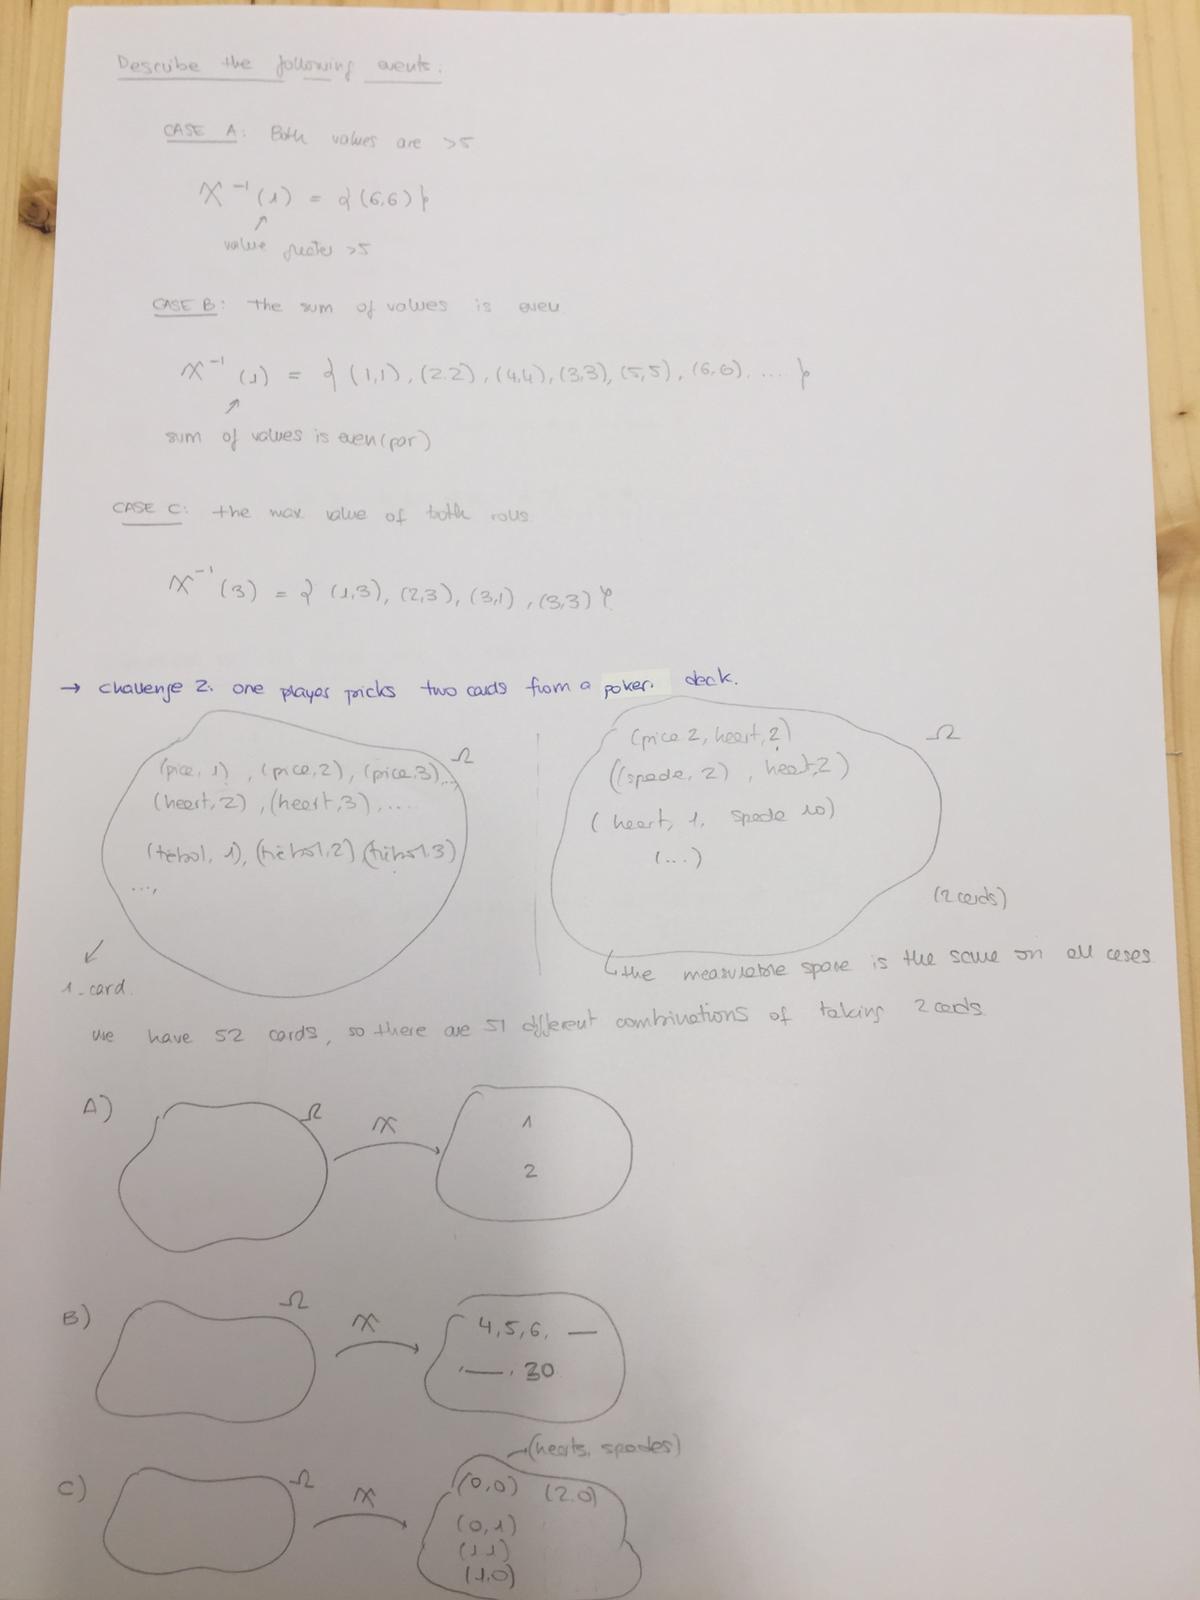 Describe the following events:
CASE A: Both values are >5
X⁻¹(1) = {(6,6)}
value greater >5
CASE B: the sum of values is even
X⁻¹(1) = {(1,1), (2,2), (4,4), (3,3), (5,5), (6,6), ....}
sum of values is even (par)
CASE C: the max value of both rolls
X⁻¹(3) = {(1,3), (2,3), (3,1), (3,3)}
→ challenge 2. one player pricks two cards from a poker. deck.
Ω
(pice, 1), (pice, 2), (pice, 3), ...
(heart, 2), (heart, 3), ....
(trébol, 1), (trébol, 2), (trébol, 3)
...,
1 card.
Ω
(pice 2, heart, 2)
((spade, 2), heart, 2)
(heart, 1, spade 10)
(...)
(2 cards)
the measurable space is the same on all cases
we have 52 cards, so there are 51 different combinations of taking 2 cards
A) Ω X 1
2
B) Ω X 4, 5, 6, —
, — . 30
(hearts, spades)
C) Ω X (0,0) (2,0)
(0,1)
(1,1)
(1,0)